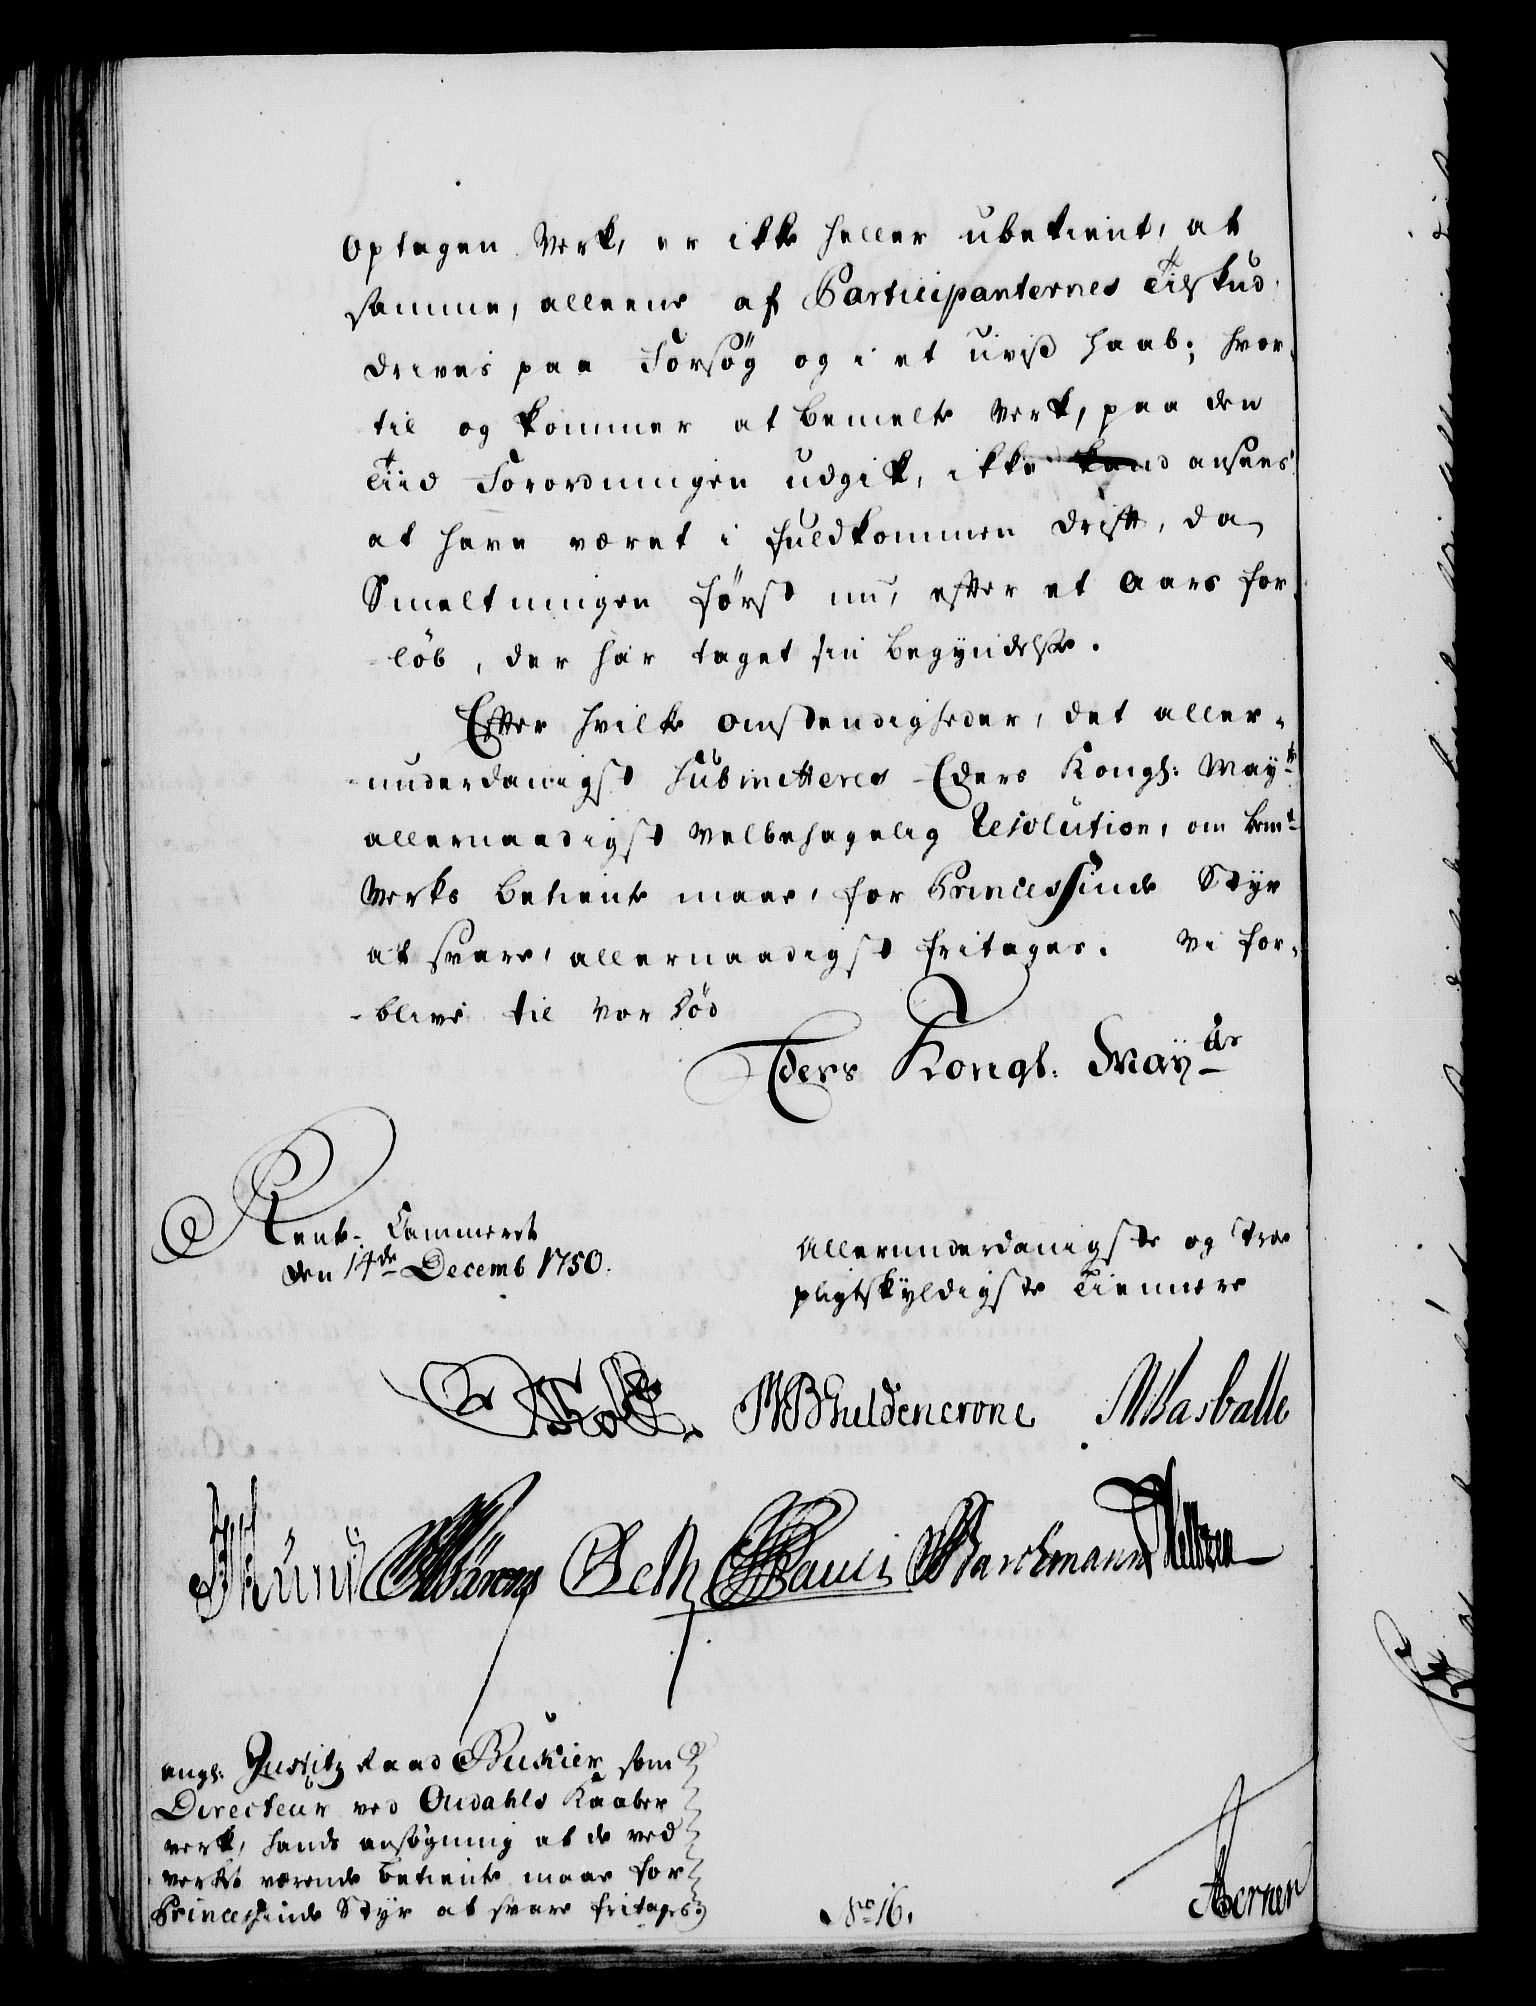 Optagen Verk, er ikke heller ubekient, at
samme, alleene af Participanternes Tilskud
drives paa Forsøg og i et uvist Haab; hvor-
til og kommer at bemelte Verk, paa den
Tiid Forordningen udgik, ikke ansees
at have været i fuldkommen Drift, da
Smeltningen først nu, efter et Aars for-
-løb, der har taget sin Begyndelse.
Efter hvilke Omstendigheder, det aller-
-underdanigst submitteres Eders Kongl: May.ts
allernaadigst Velbehagelig Resolution, om bem.te
Verks Betiente maae, for Princessinde Styr
at svare, allernaadigst fritages. Vi for-
-blive til vor Død
Eders Kongl. May.ts
Rente-Cammeret
den 14de Decemb 1750.
Allerunderdanigste og troe
pligtskyldigste Tiennere
Holst
Guldencrone
Wasballe
Bärens
Seth
Pauli
Barchmann
ang: Justitz Raad Buchier som
Directeur ved Oudahls Kaaber
verk, hands ansøgning at de ved
verket værende Betiente maae for
Princessinde Styr at svare fritages
No 16.
Berner